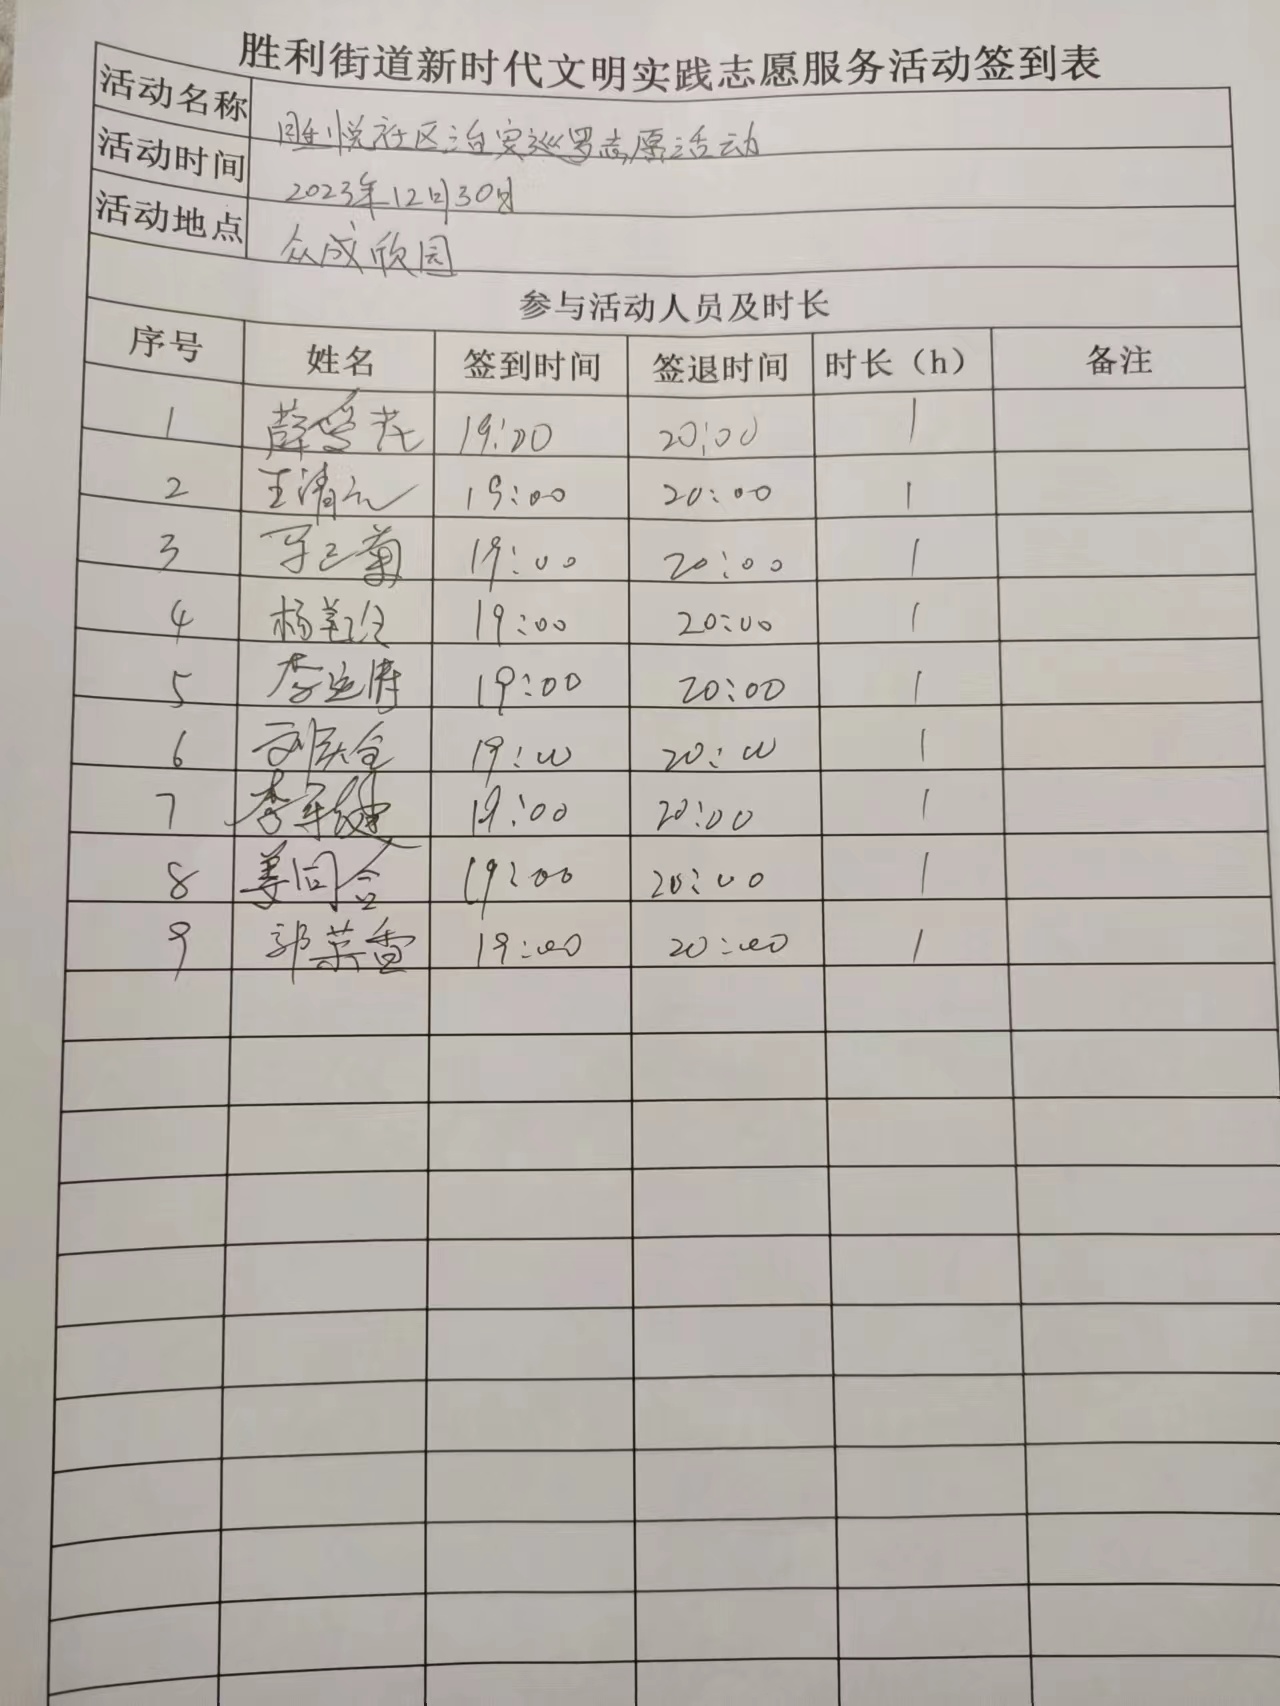 胜利街道新时代文明实践志愿服务活动签到表
活动名称 胜悦社区治安巡逻志愿活动
活动时间 2023年12月30日
活动地点 众成欣园
参与活动人员及时长
序号 姓名 签到时间 签退时间 时长（h） 备注
1 19:00 20:00 1
2 19:00 20:00 1
3 19:00 20:00 1
4 19:00 20:00 1
5 19:00 20:00 1
6 19:00 20:00 1
7 19:00 20:00 1
8 姜同合 19:00 20:00 1
9 郭菜雪 19:00 20:00 1